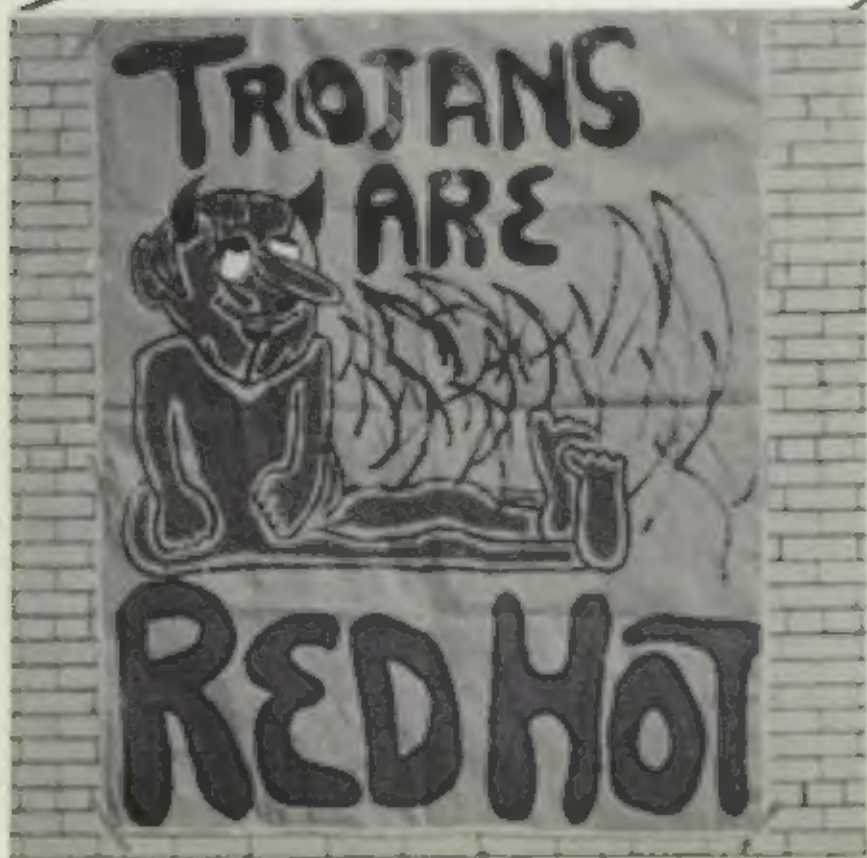 TROJANS
ARE
RED HOT